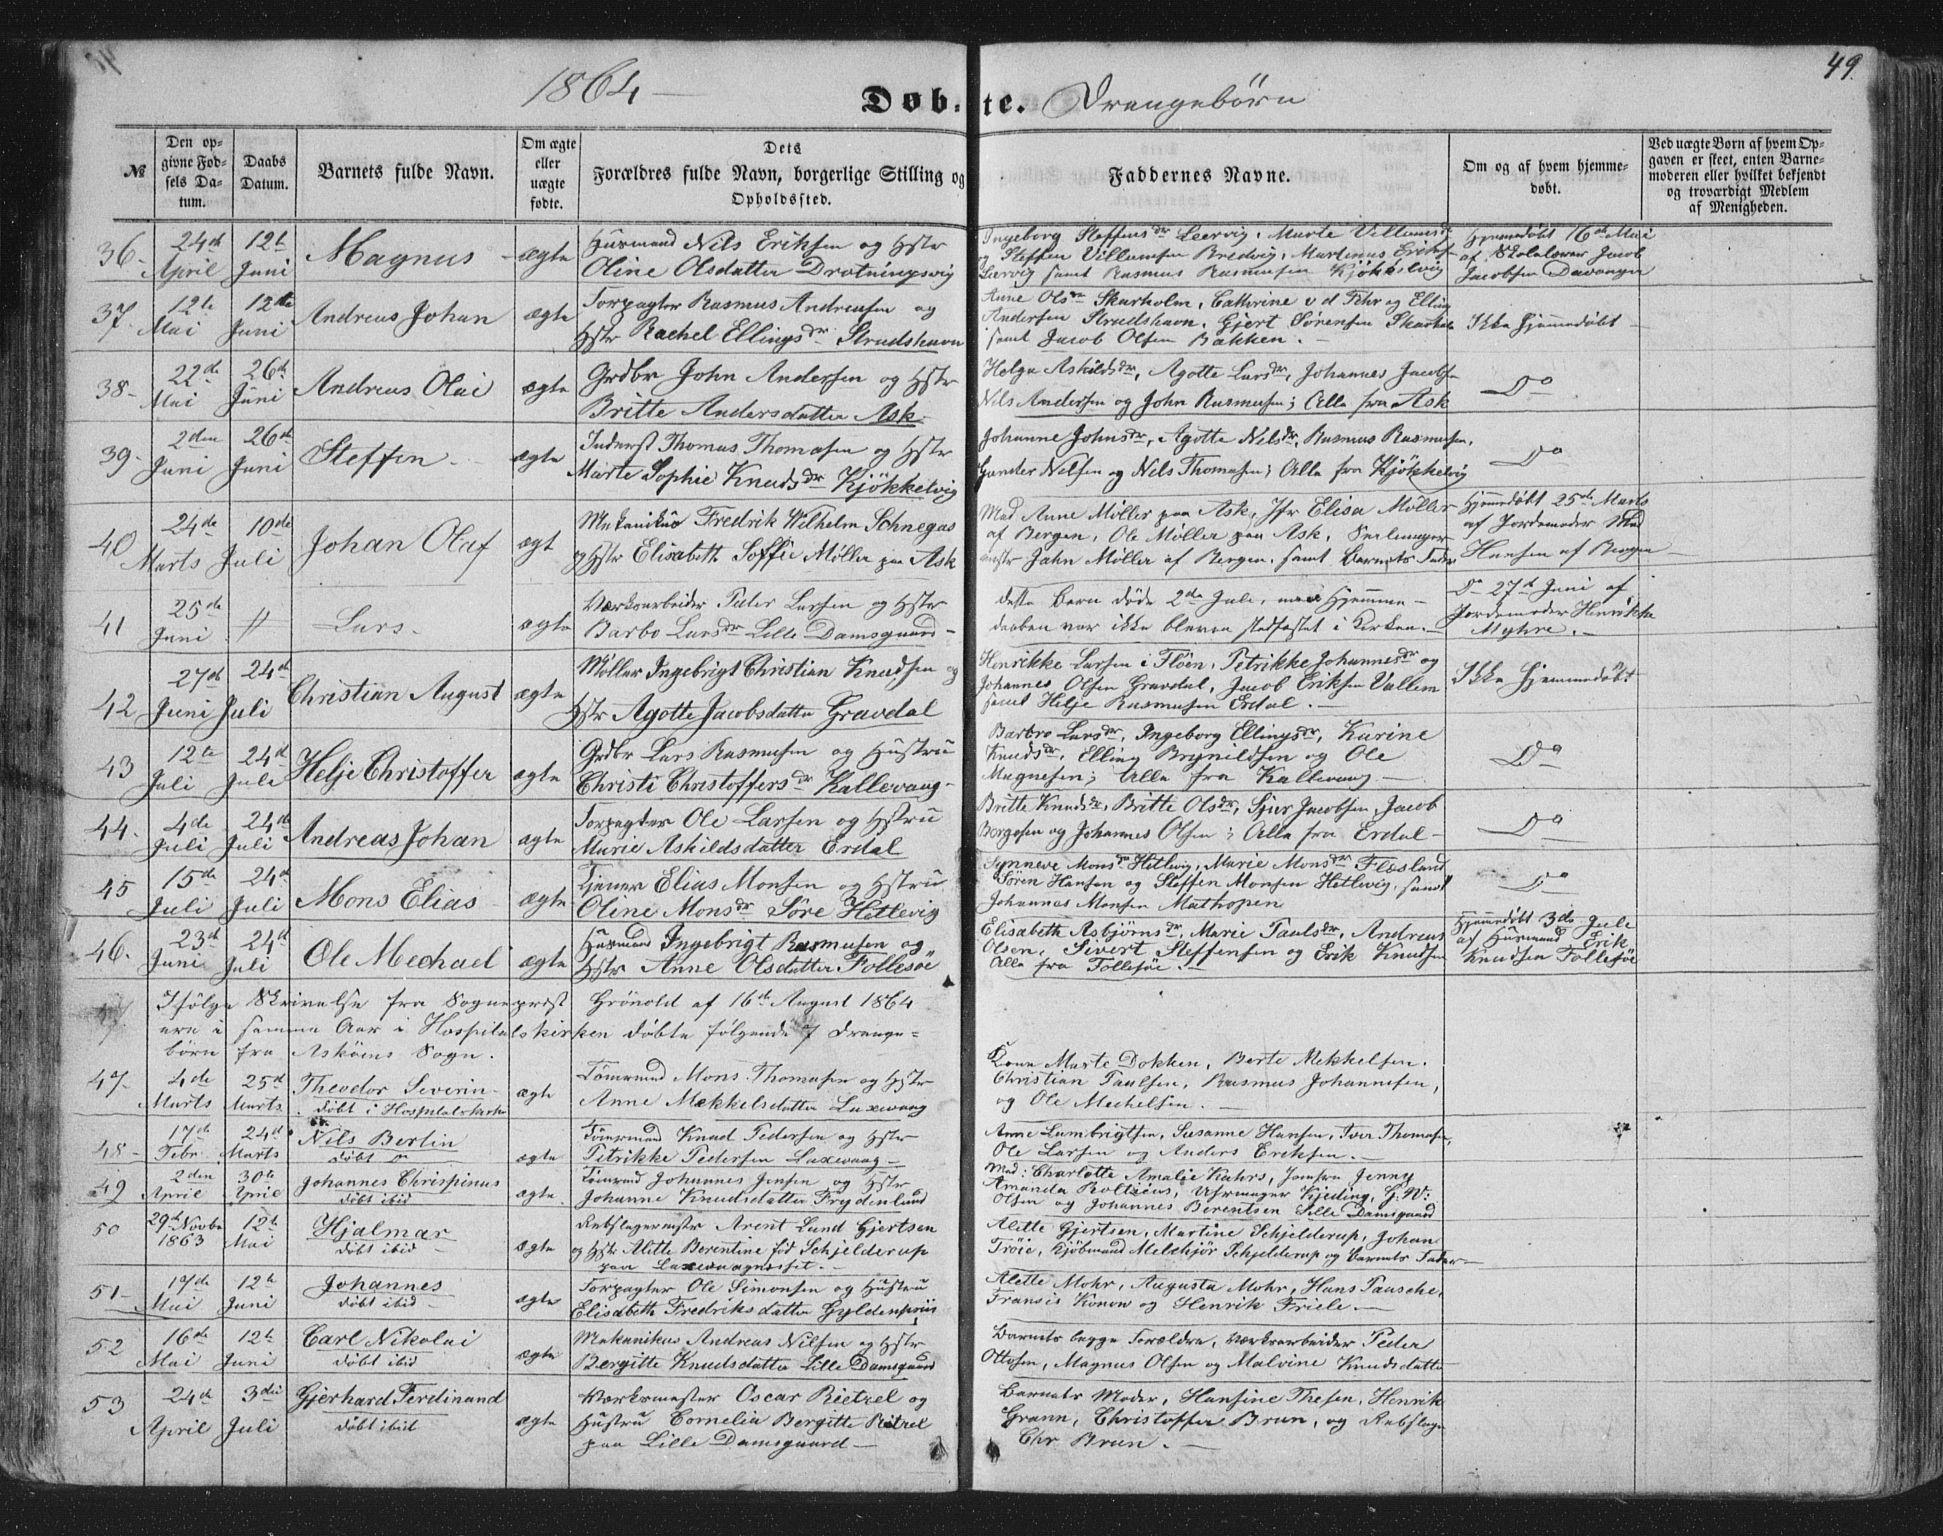 1864 —
Døbte. Drengebørn
49
№
Den opgivne Fodsels Datum.
Daabs Datum.
Barnets fulde Navn.
Om ægte eller uægte fodte.
Dets Forældres fulde Navn, borgerlige Stilling og Opholdssted.
Faddernes Navne.
Om og af hvem hjemmedobt.
Ved uægte Born af hvem Opgaven er skeet, enten Barnemoderen eller hvilket bekjendt og troværdigt Medlem af Menigheden.
36 24de April 12te Juni Magnus ægte
Husmand Nils Eriksen og Hstr
Oline Olsdatter Drotningsvig
Ingeborg Steffensdr Leervig, Marte Villumsdr
og Steffen Villumsen Bredvig, Martinus Eriks.
Leervig samt Rasmus Rasmussen Kjøkkelvig
Hjemmedøbt 16de Mai
af Skolelærer Jacob
Jacobsen Davanger
37. 12te Mai 12te Juni Andreas Johan ægte
Forpagter Rasmus Andreasen og
Hstr Rachel Ellingsdr Strudshavn
Anne Olsdr Skarholm, Cathrine v d Fehr og Elling
Andersen Strudshavn, Gjert Sørensen Skarholm
samt Jacob Olsen Bakken. —
Ikke hjemmedøbt —
38- 22de Mai 26de Juni Andreas Olai ægte
Grdbr John Andersen og Hstr
Britte Andersdatter Ask.
Helga Askildsdr, Agotte Larsdr, Johannes Jacobs.
Nils Andersen og John Rasmussen; Alle fra Ask
Do
39- 2den Juni 26de Juni Steffen. ægte
Inderst Thomas Thomasen og Hstr
Marte Sophie Knudsdr Kjøkkelvig
Johanne Johnsdr, Agotte Nilsdr, Rasmus Rasmussen,
Gunder Nilsen og Nils Thomasen; Alle fra Kjøkkelvig
Do
40 24de Marts 10de Juli Johan Olaf ægt
Mekanikus Fredrik Wilhelm Schnegas
og Hstr Elisabeth Soffie Møller paa Ask
Mad Anne Møller paa Ask, Jfr Elisa Møller
af Bergen, Ole Møller paa Ask, Seilmager-
mestr Jahn Møller af Bergen, samt Barnets Fader
Hjemmedøbt 25de Marts
af Jordemoder Mad
Hansen af Bergen —
41 25de Juni // Lars. ægte
Værksarbeider Peder Larsen og Hstr
Barbo Larsdr Lille Damsgaard-
dette Barn døde 2de Juli, men Hjemme-
daaben var ikke bleven stadfæstet i Kirken. —
Do 27de Juni af
Jordemoder Henrikke
Myhre. —
42 27de Juni 24de Juli Christian August ægte
Møller Ingebrigt Christian Knudsen og
Hstr Agotte Jacobsdatter Gravdal
Henrikke Larsen i Fløen, Petrikke Johannesdr og
Johannes Olsen Gravdal, Jacob Eriksen Vallem
samt Helje Rasmussen Erdal. —
Ikke hjemmedøbt
43 12te Juli 24de Juli Helje Christoffer ægte
Grdbr Lars Rasmussen og Hustru
Christi Christoffersdr Kallevaag-
Barbro Larsdr, Ingeborg Ellingsdr, Karine
Knudsdr, Elling Brynildsen og Ole
Magnesen; Alle fra Kallevaag —
Do
44. 4de Juli 24de Juli Andreas Johan ægte
Forpagter Ole Larsen og Hstru
Marie Askildsdatter Erdal
Britte Knudsdr, Britte Olsdr, Sjur Jacobsen Jacob
Borgesen og Johannes Olsen; Alle fra Erdal-
Do
45 15de Juli 24de Juli Mons Elias ægte
Tjener Elias Monsen og Hstru
Oline Monsdr Søre Hetlevig
Synneve Monsdr Hetlevig, Marie Monsdr Flesland
Søren Hansen og Steffen Monsen Hetlevig, samt
Johannes Monsen Mathopen
Do
46. 23de Juni 24de Juli Ole Mechael ægte
Husmand Ingebrigt Rasmusen og
Hstr Anne Olsdatter Follesøe
Elisabeth Asbjørnsdr, Marie Paulsdr, Andreas
Olsen, Sivert Steffensen og Erik Knudsen
Alle fra Follesøe. —
Hjemmedøbt 3de Juli
af Husmand Erik
Knudsen Follesøe
Ifølge Skrivelse fra Sogneprest Grönvold af 16de August 1864
ere i samme Aar i Hospitalskirken døbte følgende 7 Drenge-
børn fra Askøens Sogn.
47. 4de Marts 25de Marts Theodor Severin døbt i Hospitalskirken ægte
Tømmand Mons Thomasen og Hstr
Anne Mekkelsdatter Laxevaag
Kone Marte Dokken, Berte Mekkelsen.
Christian Paulsen, Rasmus Johannesen,
og Ole Mechelsen. —
48- 17de Febr. 24de Marts Nils Bertin døbt do ægte
Tømermand Knud Pedersen og Hstr
Petrikke Pedersen Laxevaag —
Anne Lambrigtsen, Susanne Hansen, Iver Thomasen,
Ole Larsen og Anders Eriksen. —
49 2den April 30te April Johannes Chrispinus døbt ibid ægte
Tømmand Johannes Jensen og Hstr
Johanne Knudsdatter Frydenlund
Mad: Charlotte Amalie Kahrs, Jomfru Jenny
Amanda Boltzius, Uhrmager Kjeding, G. W:
Olsen og Johannes Berentsen Lille Damsgaard
50 29de Novbr 1863 12te Mai Hjalmar døbt ibid — ægte
Rebslagermester Arent Lund Gjertsen
og Hstr Alitte Berentine fød Schjelderup
paa Laxevaagnesset. —
Alette Gjertsen, Martine Schjelderup, Johan
Trøie, Kjøbmand Melchjør Schjelderup og Barnets Fader —
51- 17de Mai 12te Juni Johannes døbt ibid — ægte
Forpagter Ole Simonsen og Hustru
Elisabeth Fredriksdatter Gyldenpriis
Alette Mohr, Augusta Mohr, Hans Pausche,
Fransis Konow og Henrik Friele. —
52 16de Mai 12te Juni Carl Nikolai døbt ibid ægte
Mekanikus Andreas Nilsen og Hstr
Bergitte Knudsdatter Lille Damsgaard
Barnets begge Forældre, Værksarbeider Peder
Ottosen, Magnus Olsen og Malvine Knudsdatter
53 24de April 3die Juli Gjerhard Ferdinand døbt ibid ægte
Værksmester Oscar Rietzel og
Hustru Cornelia Bergitte Rietzel
paa Lille Damsgaard —
Barnets Moder, Hansine Thesen, Henrik
Grann, Christoffer Brun, og Rebslager
Chr Brun. —